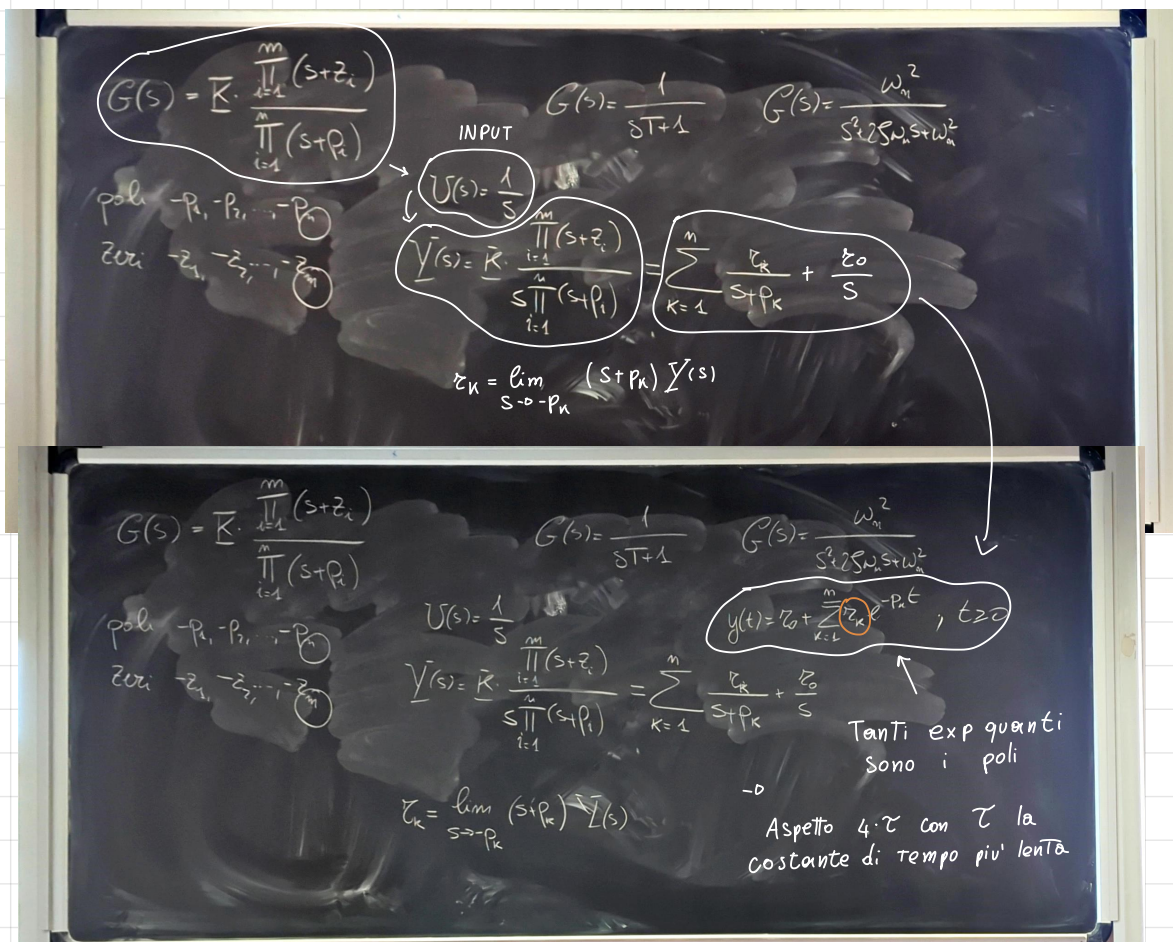 G(s) = K̅ · ∏_{i=1}^{m} (s+z_i) / ∏_{i=1}^{n} (s+p_i)
G(s) = 1 / (sT+1)
G(s) = ω_n² / (s²+2ζω_n s+ω_n²)
INPUT
U(s) = 1/s
poli -p_1, -p_2, ..., -p_n
zeri -z_1, -z_2, ..., -z_m
Y(s) = K̅ · ∏_{i=1}^{m} (s+z_i) / s∏_{i=1}^{n} (s+p_i) = ∑_{k=1}^{n} r_k / (s+p_k) + r_0 / s
r_k = lim_{s→-p_k} (s+p_k) Y(s)
G(s) = K̅ · ∏_{i=1}^{m} (s+z_i) / ∏_{i=1}^{n} (s+p_i)
G(s) = 1 / (sT+1)
G(s) = ω_n² / (s²+2ζω_n s+ω_n²)
U(s) = 1/s
y(t) = r_0 + ∑_{k=1}^{n} r_k e^{-p_k t} , t≥0
poli -p_1, -p_2, ..., -p_n
zeri -z_1, -z_2, ..., -z_m
Y(s) = K̅ · ∏_{i=1}^{m} (s+z_i) / s∏_{i=1}^{n} (s+p_i) = ∑_{k=1}^{n} r_k / (s+p_k) + r_0 / s
Tanti exp quanti
sono i poli
→
r_k = lim_{s→-p_k} (s+p_k) Y(s)
Aspetto 4·τ con τ la
costante di tempo piu' lenta